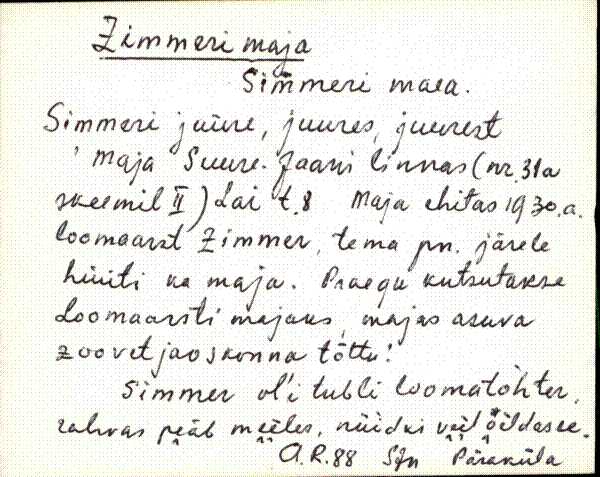 Zimmeri maja
Sim̄meri maea.
Simmeri juure, juures, juurest
Maja Suure-Jaani linnas (nr. 31a
skeemil II) Lai t. 8 Maja ehitas 1930.a.
loomaarst Zimmer, tema pn. järele
hüüti ka maja. Praegu kutsutakse
Loomaarsti majaks, majas asuva
zoovetjaoskonna tõttu.
Simmer ol'i tubli loomatohter,
rahvas peab meeles, nüidki veel öildasse.
A.R. 88 SJn Päraküla